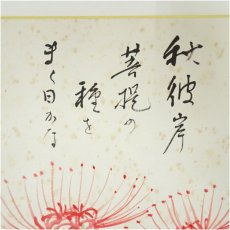 秋彼岸
菩提の
種を
まく日かな